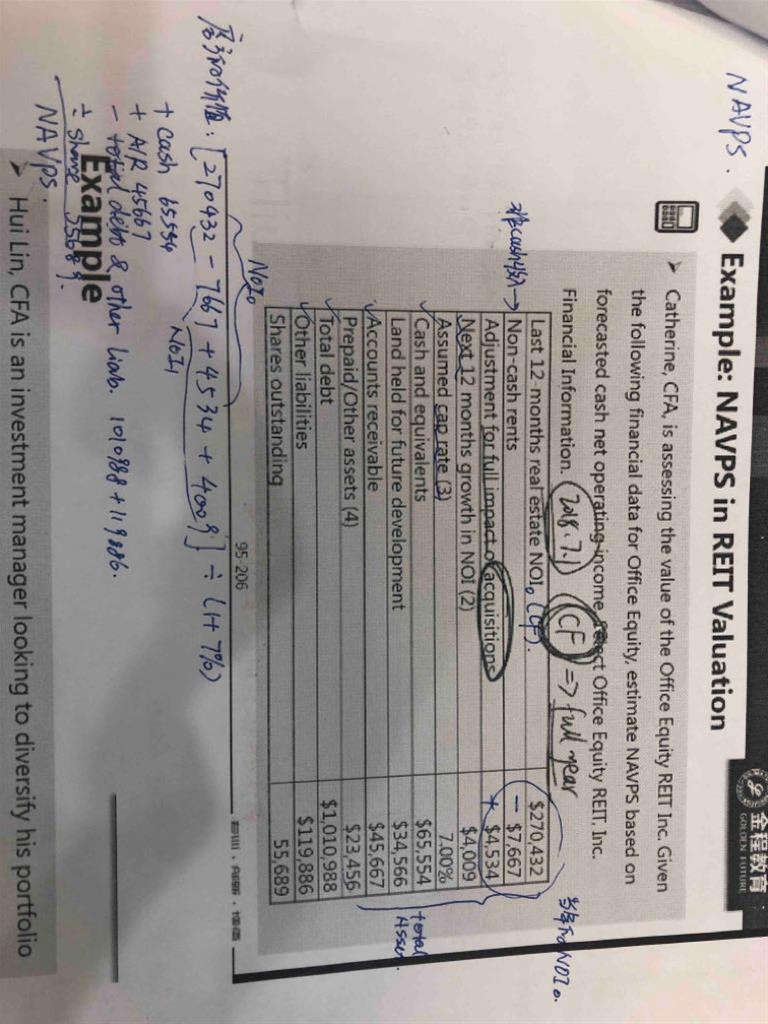 NAVPS.
金程教育
GOLDEN FUTURE
Example: NAVPS in REIT Valuation
➤ Catherine, CFA, is assessing the value of the Office Equity REIT Inc. Given
the following financial data for Office Equity, estimate NAVPS based on
forecasted cash net operating income. Select Office Equity REIT, Inc.
Financial Information. (2018.7.1) (CF) => full year
Last 12-months real estate NOI₀ (CF). $270,432
Non-cash rents − $7,667
Adjustment for full impact of acquisitions + $4,534
Next 12 months growth in NOI (2) $4,009
Assumed cap rate (3) 7.00%
Cash and equivalents $65,554
Land held for future development $34,566
Accounts receivable $45,667
Prepaid/Other assets (4) $23,456
Total debt $1,010,988
Other liabilities $119,886
Shares outstanding 55,689
total
Asset.
NOI₀
95-206
[270432 - 7667 + 4534 + 4009] ÷ (1+7%)
NOI₁
+ cash 65554
+ A/R 45667
- total debt & other liab. 1010988 + 119886.
÷ share 55689.
NAVps.
Example
➤ Hui Lin, CFA is an investment manager looking to diversify his portfolio